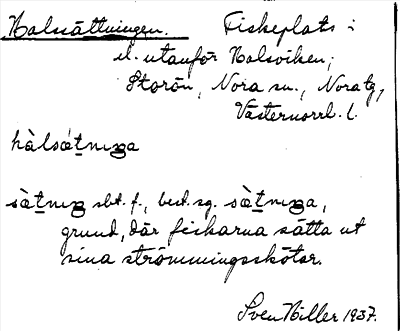 Halssättningen. Fiskeplats i
el. utanför Halsviken,
Storön, Nora sn., Nora tg,
Västernorrl. l.
hàlsǽt̲nıŋa
sǽt̲nıŋ sbt. f., best. sg. sǽt̲nıŋa,
grund, där fiskarna sätta ut
sina strömmingsskötar.
Sven Hiller 1937.